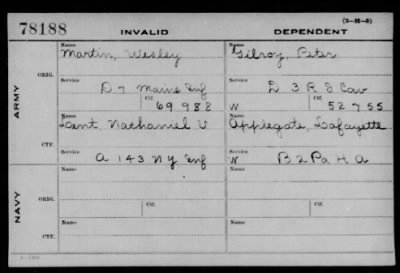 (3-H-5)
78188 INVALID DEPENDENT
Name Name
Martin, Wesley Gilroy, Peter
ORIG.
Service Service
D 7 Maine Inf D 3 R I Cav
Ctf. Ctf.
69 988 W 52 755
ARMY
Name Name
Lent, Nathaniel V Applegate, Lafayette
CTF.
Service Service
A 143 N Y Inf W B 2 Pa H A
Name Name
ORIG.
Ctf. Ctf.
NAVY
Name Name
CTF.